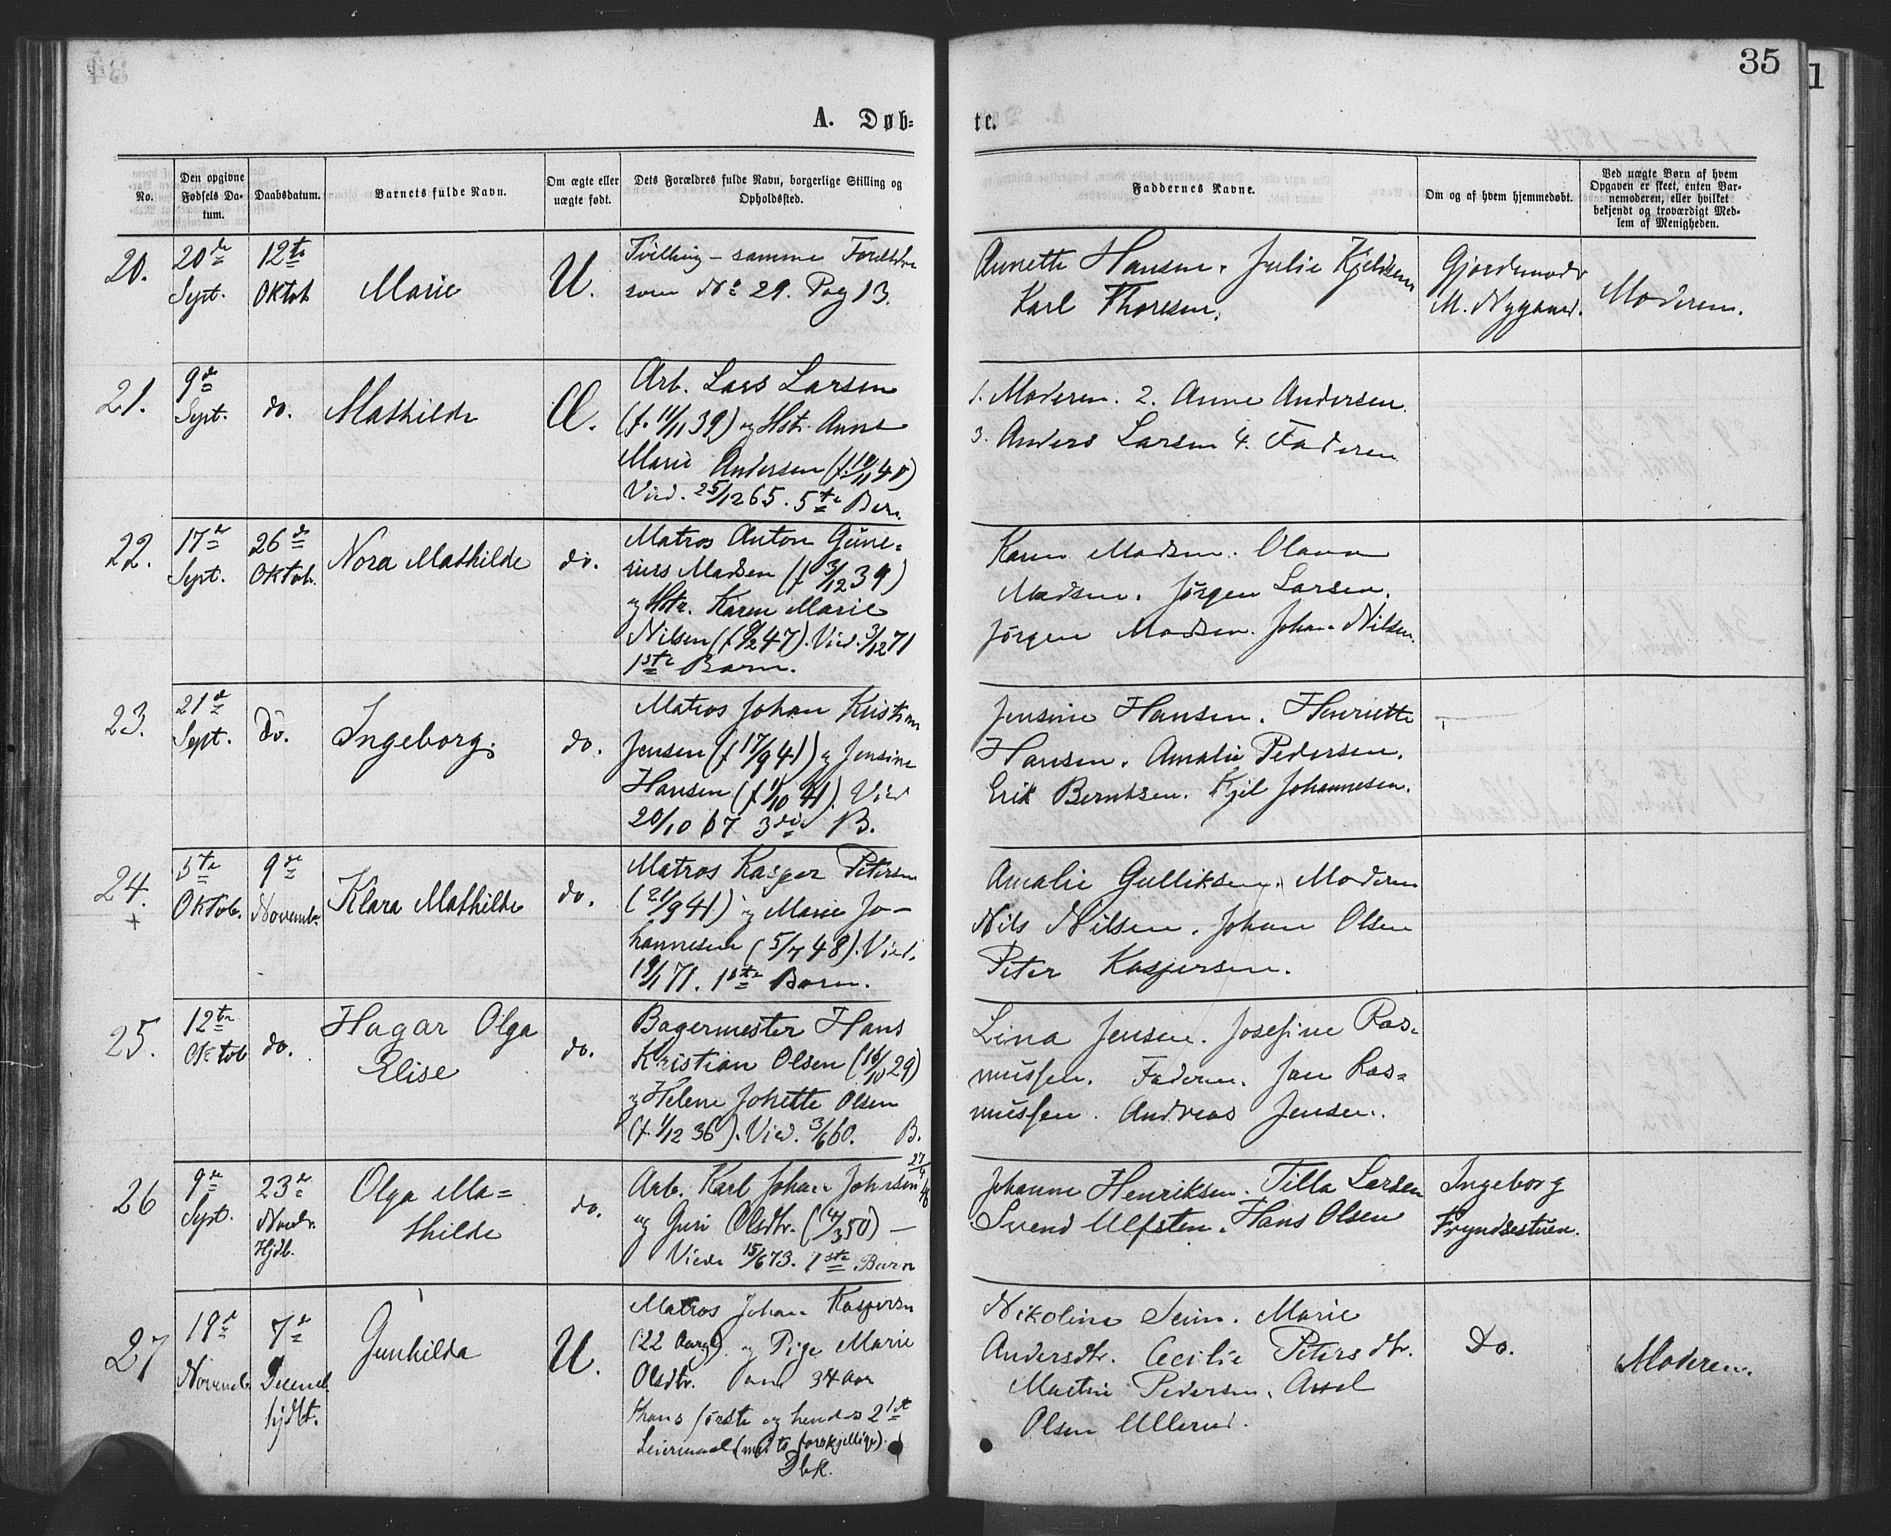 35
1
A. Døb-
te.
No.
Den opgivne Fødsels Da-tum.
Daabsdatum.
Barnets fulde Navn.
Om ægte eller uægte født.
Dets Forældres fulde Navn, borgerlige Stilling og Opholdssted.
Faddernes Navne.
Om og af hvem hjemmedøbt.
Ved uægte Børn af hvem Opgaven er skeet, enten Bar-nemoderen, eller hvilket bekjendt og troværdigt Med-lem af Menigheden.
20.
20de Sept.
12te Oktob
Marie
U.
Tvilling – samme Forældre
som No 29. Pag 13.
Annette Hansen. Julie Kjeldsen
Karl Thoresen.
Gjordemoder
M. Nygaard.
Moderen.
21.
9de Sept.
do.
Mathilde
Æ.
Arb. Lars Larsen
(f. 11/11 39) og Hstr. Anne
Marie Andersen (f. 12/11 40)
Vied. 25/12 65. 5te Barn
1. Moderen. 2. Anne Andersen.
3. Anders Larsen 4. Faderen
22.
17de Sept.
26de Oktob.
Nora Mathilde
do.
Matros Anton Gune-
rius Madsen (f 3/12 39)
og Hstr. Karen Marie
Nilsen (f 9/2 47). Vied. 3/12 71
1ste Barn.
Karen Madsen. Olava
Madsen. Jørgen Larsen.
Jørgen Madsen. Johan Nilsen.
23.
21de Sept.
Do.
Ingeborg.
do.
Matros Johan Kristian
Jensen (f 17/9 41) og Jensine
Hansen (f 1/10 41). Vied
20/10 67 3die B.
Jensine Hansen. Henriette
Hansen. Amalie Pedersen.
Erik Berntsen. Kjel Johannesen.
24.
+
5te Oktob.
9de Novemb.
Klara Mathilde
do.
Matros Kasper Petersen
(21/9 41) og Marie Jo-
hannesen (5/7 48). Vied.
19/1 71. 1ste Barn.
Amalie Gulliksen. Moderen
Nils Nilsen. Johan Olsen
Peter Kaspersen.
25.
12te Oktob
do.
Hagar Olga
Elise
do.
Bagermester Hans
Kristian Olsen (16/10 29)
og Helene Johette Olsen
(f. 1/12 36). Vied. 3/6 60. B.
Lina Jensen. Josefine Ras-
mussen. Faderen. Jan Ras-
mussen. Andreas Jensen.
26
9de Sept.
23de Novbr. Hjdb.
Olga Ma-
thilde
do.
Arb. Karl Johan Johnsen 27/4 48
og Guri Olsdtr. (4/3 50) –
Viede 15/6 73. 1ste Barn
Johanne Henriksen. Tilla Larsen
Svend Ulfsten. Hans Olsen
Ingeborg
Fryndsestuen.
27
19de Novemb
7de Decemb hjdbt.
Gunhilda
U.
Matros Johan Kaspersen
(22 Aar gl) og Pige Marie
Olsdtr. 34 Aar
Hans første og hendes 2det
Leiermaal (med to forskjellige).
Dbk.
Nikoline Seim. Marie
Andersdtr. Cecilie Petersdtr.
Martin Pedersen. Axel
Olsen Ullerud.
Do.
Moderen.